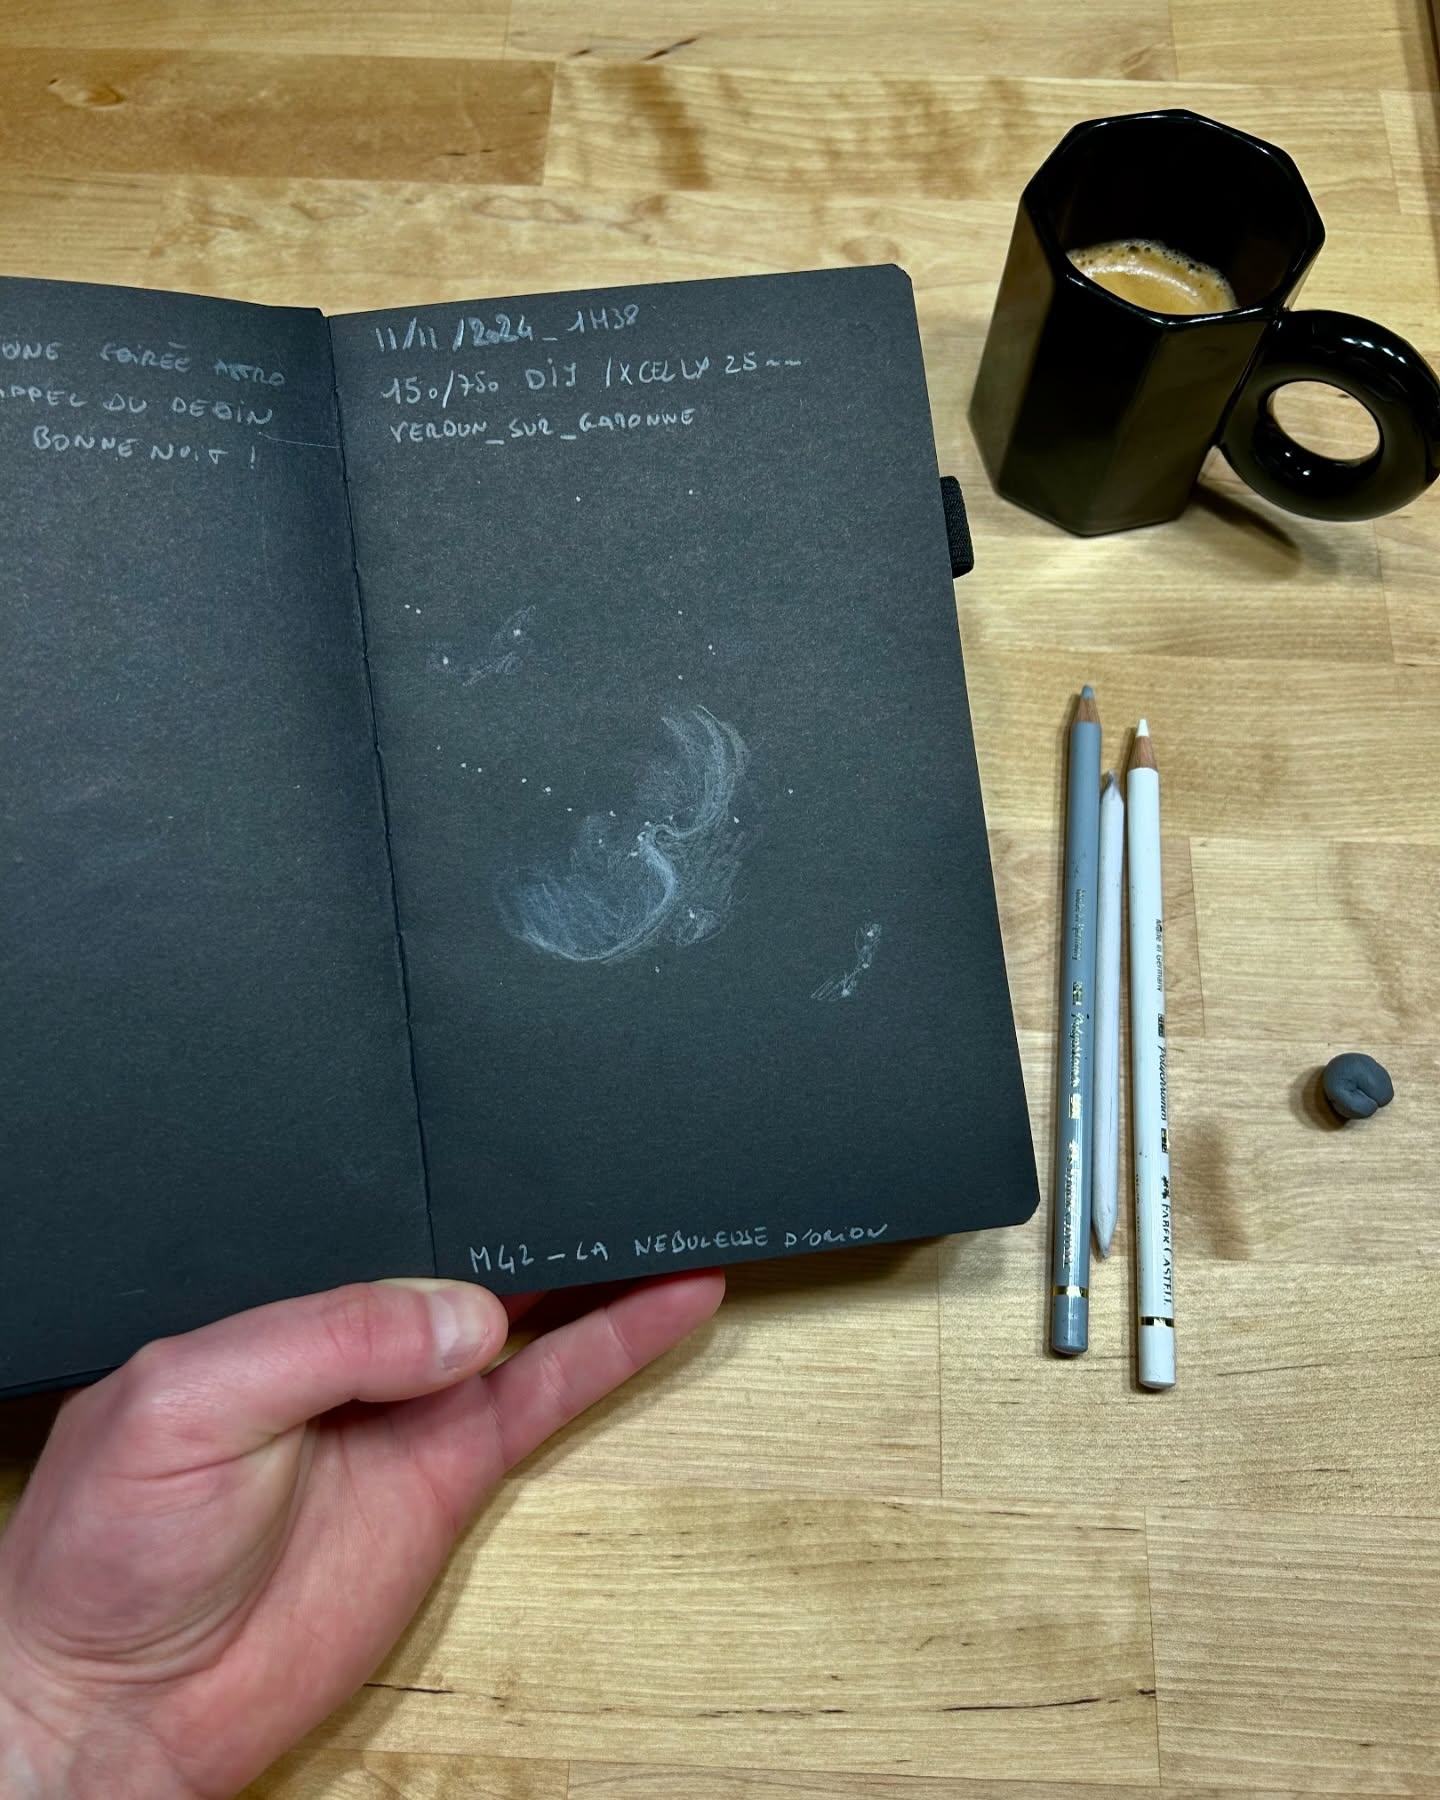 SOIRÉE ASTRO
APPEL DU DESSIN
BONNE NUIT !
11/11/2024_1H38
150/750 DIY /XCELLX 25mm
VERDUN_SUR_GARONNE
M42 - LA NEBULEUSE D'ORION
Made in Germany
Polychromos
Made in Germany
Polychromos
FABER-CASTELL